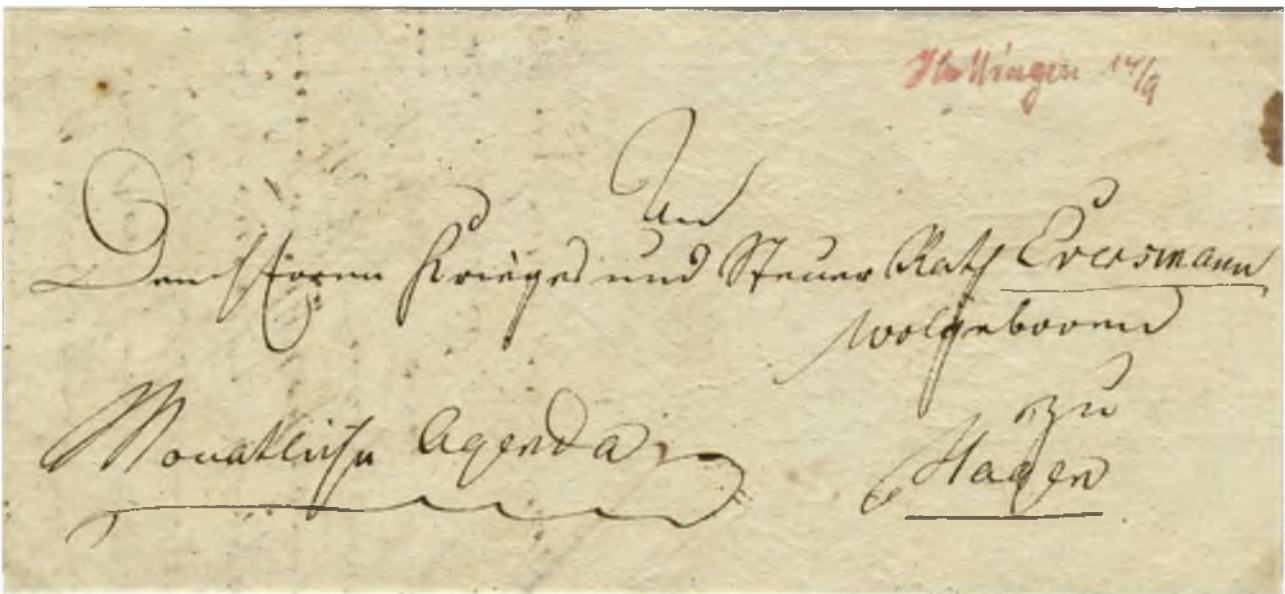 Hattingen 14/9
An
Den Herren Krieges und Steuer Rath Eversmann
wolgeboren
zu
Monatliche Agenda Hagen